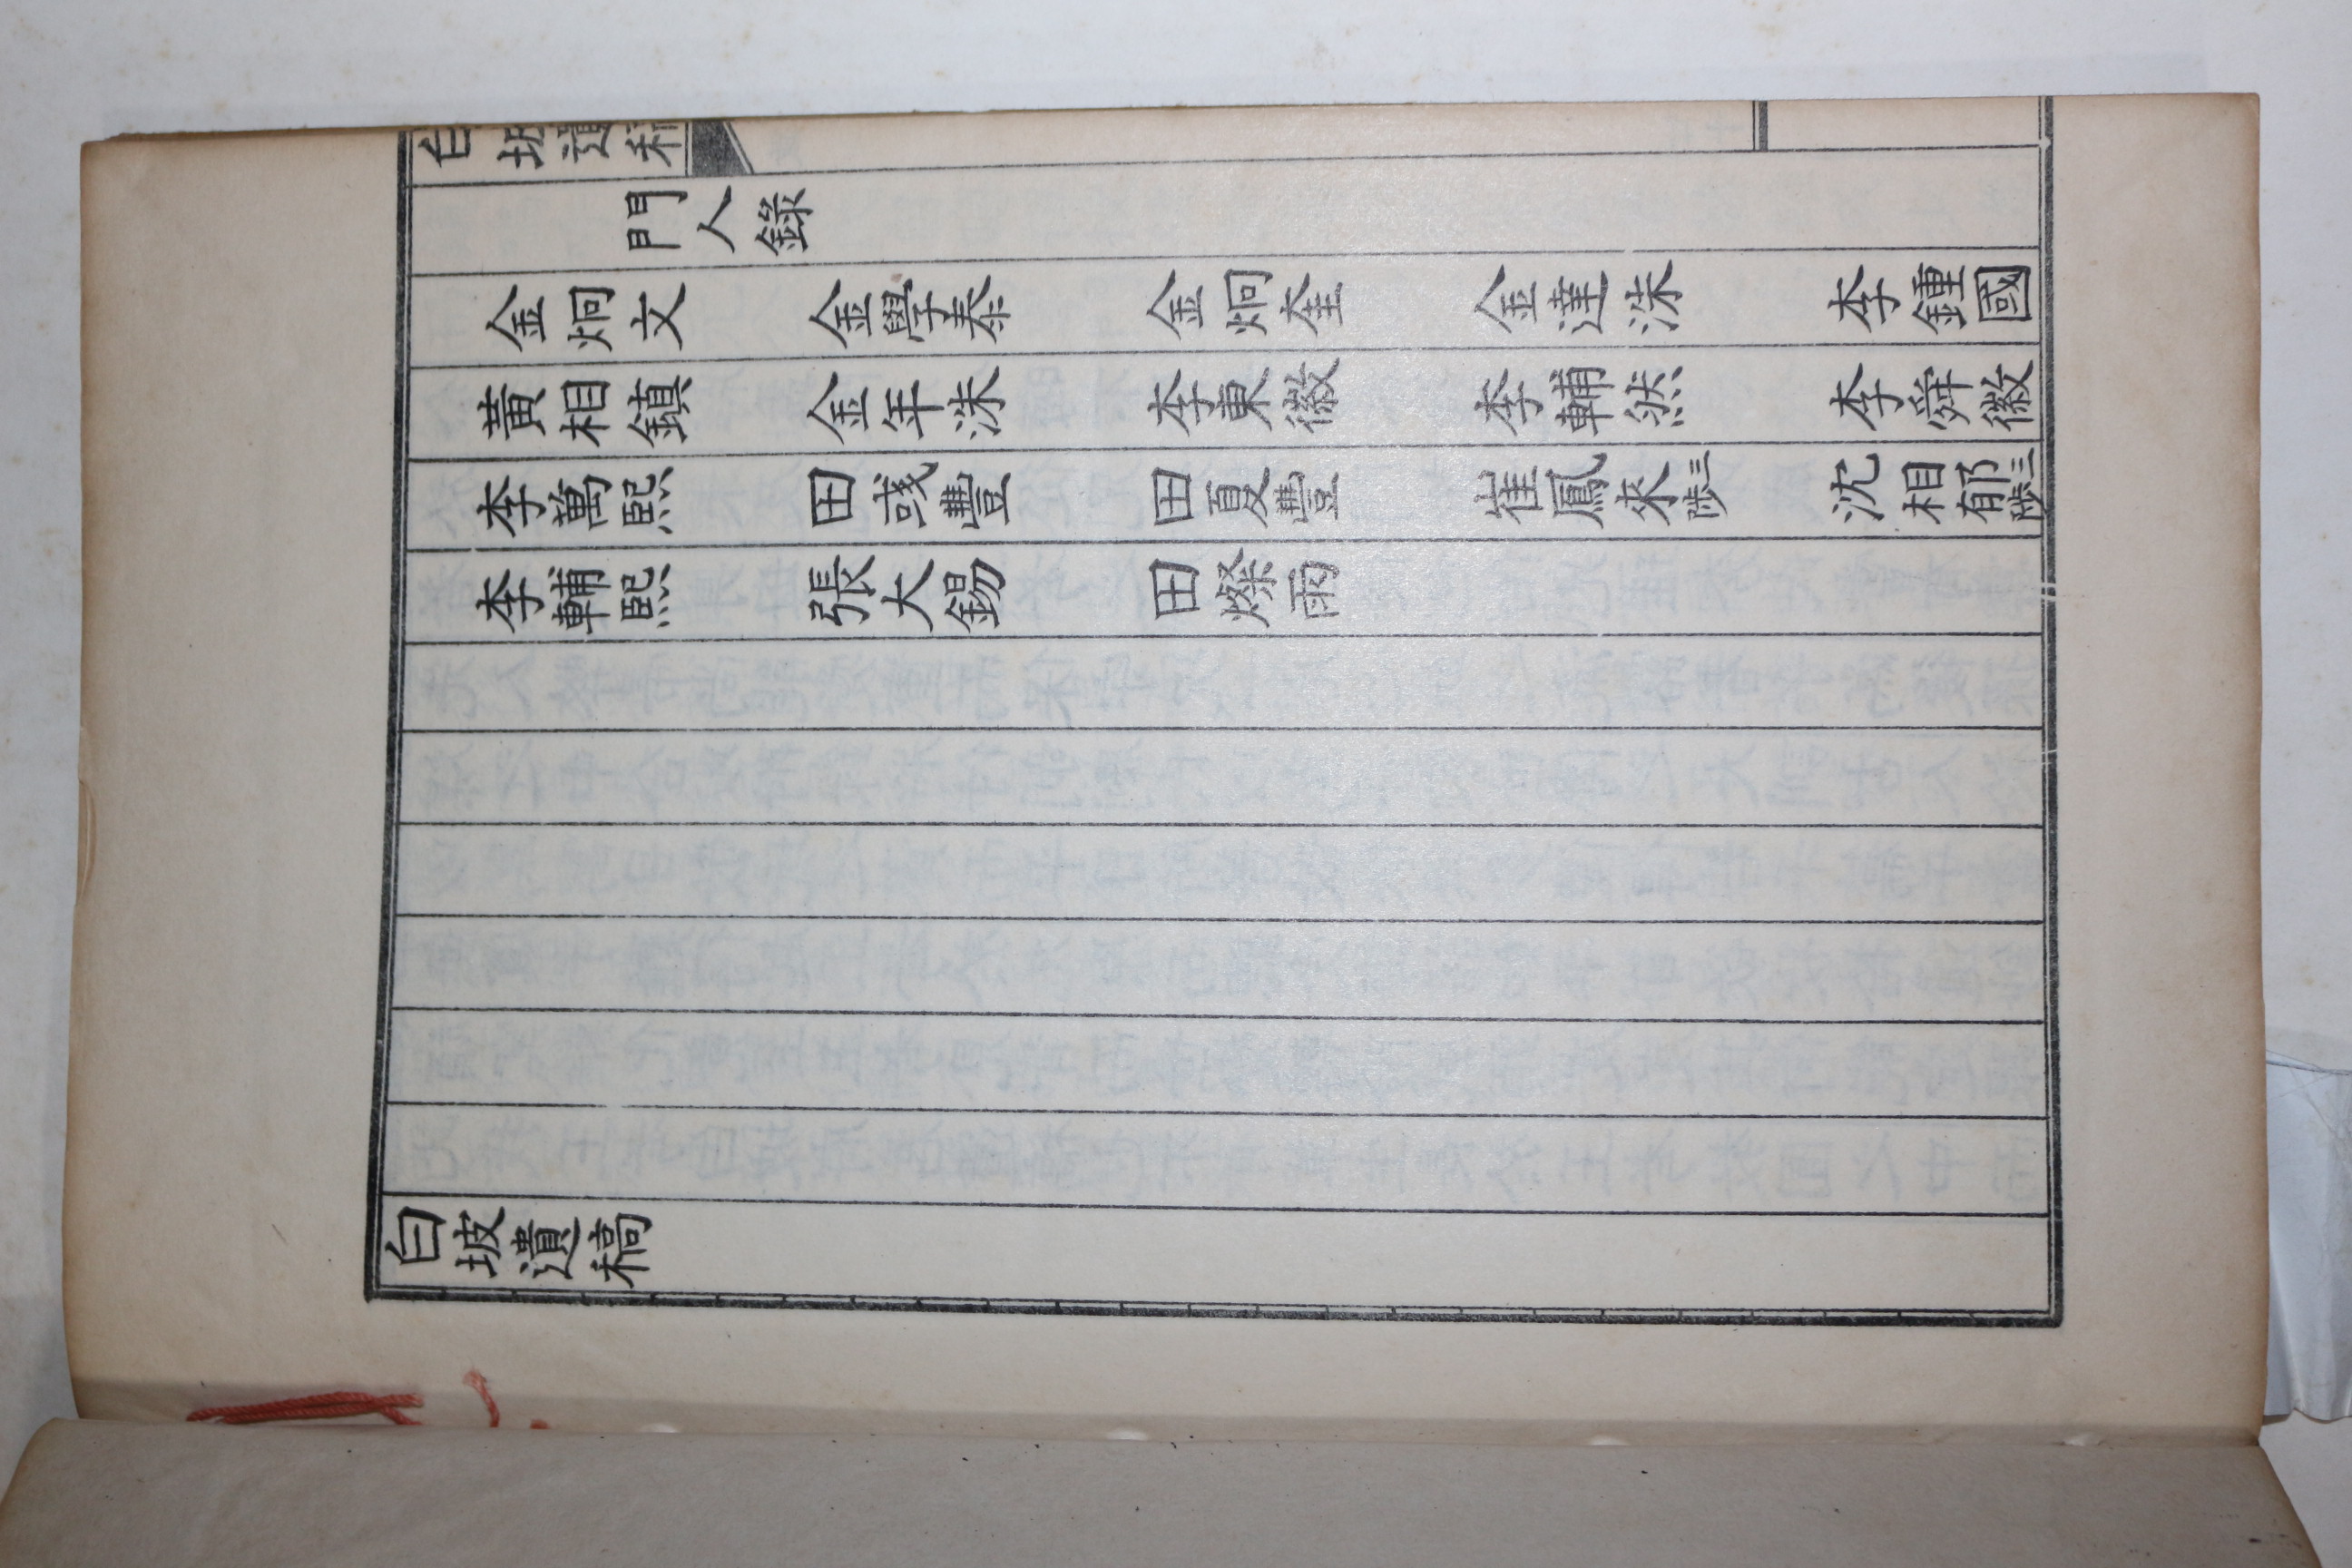 白坡遺稿
門人錄
金炯文 金學泰 金炯奎 金達洙 李鍾國
黃相鎮 金年洙 李東徽 李輔然 李舜徽
李萬熙 田彧豐 田夏豐 崔鳳來三陟 沈相郁三陟
李輔熙 張大錫 田燦雨
白坡遺稿